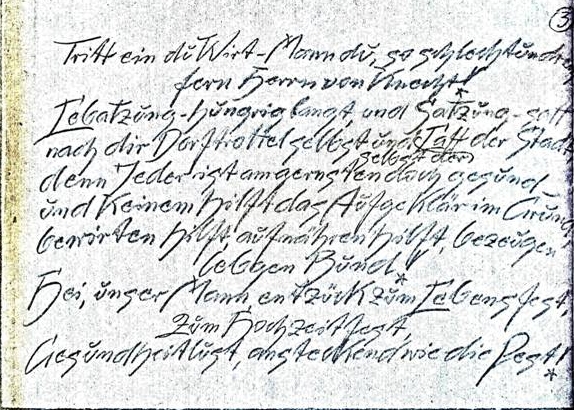 3
Tritt ein du Wirt-Mann du, so schlecht und
fern Herrn von Knecht!
Lebatzung-hungrig langt und Satzung-satt
nach dir Dorftrottel selbst und Taff der Stadt
selbst der
denn Jeder ist am gernsten doch gesund
und Keinem hilft das Aufgeklär im Grund,
bewirten hilft, aufnähren hilft, bezeugen
lebgen Bund!
*
Hei, unser Mann entzück zum Lebensfest,
zum Hochzeitfest,
Gesundheitlust, ansteckend wie die Pest!
*